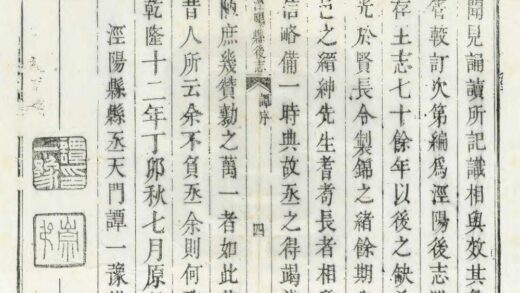 聞見誦讀所記識相與效其
較訂次第編爲涇陽後志
存王志七十餘年以後之缺
光於賢長令製錦之緒餘期
之縉紳先生耆耈長者相
略備一時典故丞之得竭
縣後志 譚序 四
陋庶幾贊勷之萬一者如此
昔人所云余不負丞余則何
乾隆十二年丁卯秋七月原
涇陽縣縣丞天門譚一豫